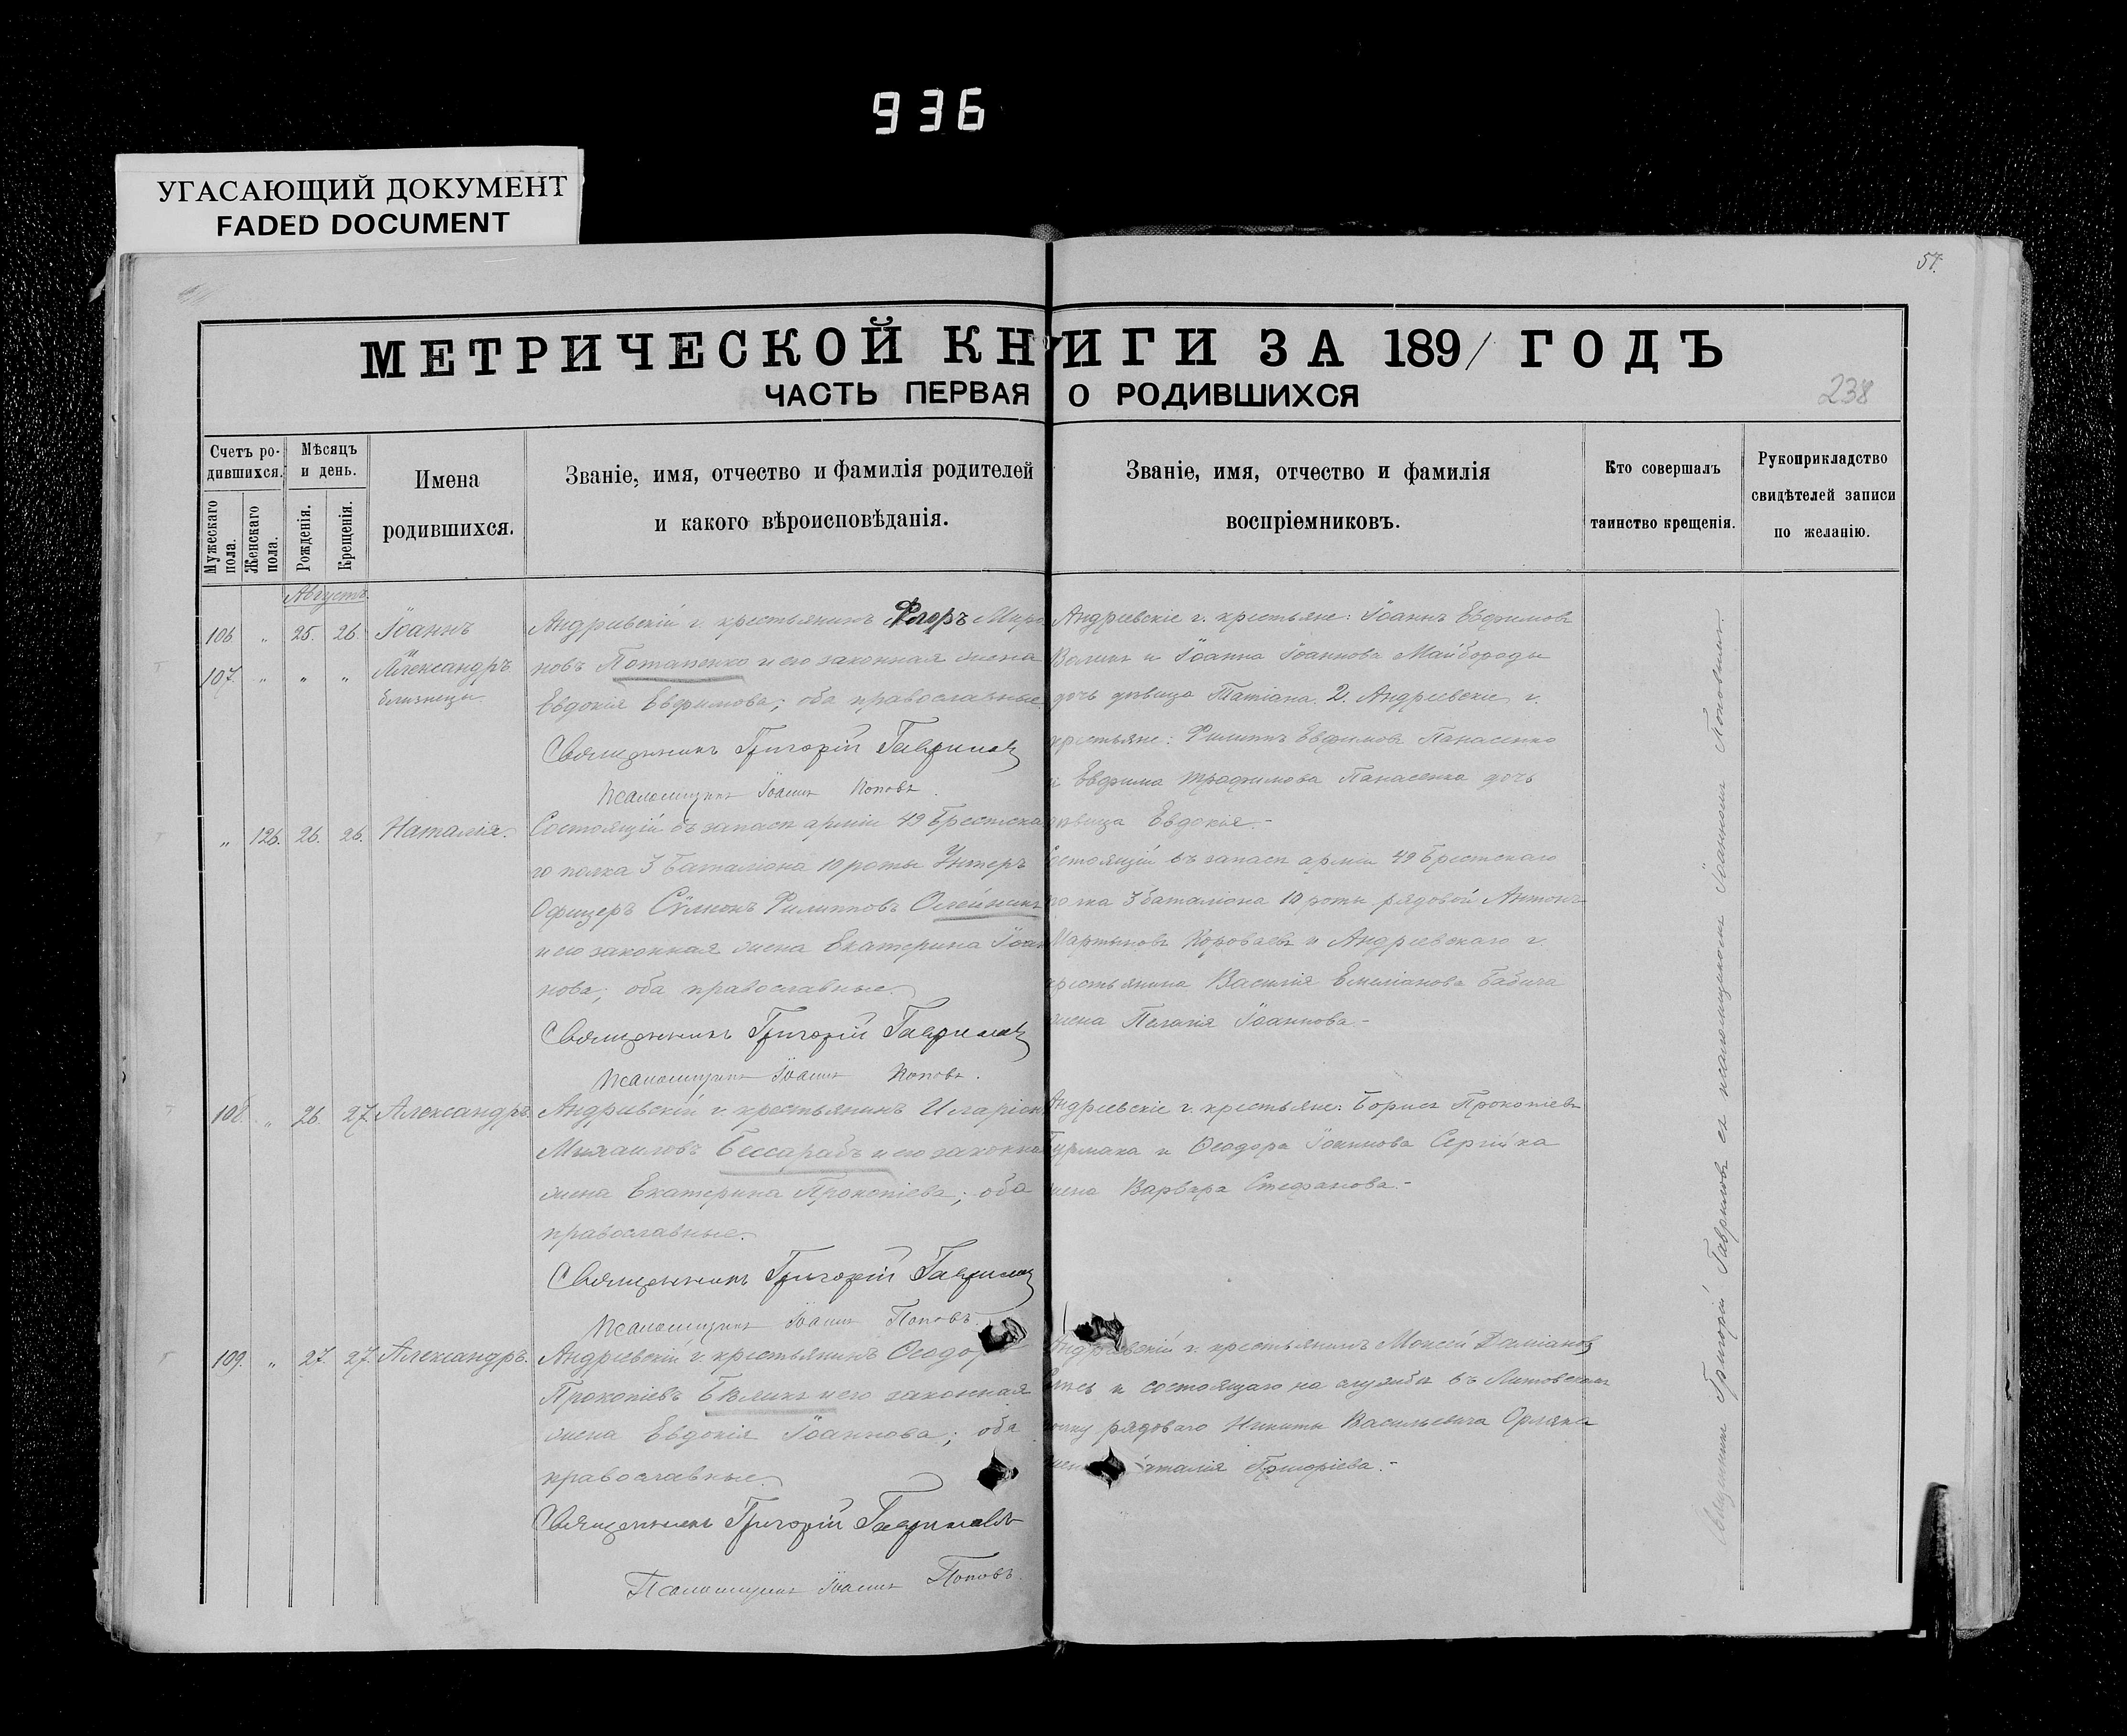 936
УГАСАЮЩИЙ ДОКУМЕНТ
FADED DOCUMENT
57.
МЕТРИЧЕСКОЙ КНИГИ ЗА 1891 ГОДЪ
ЧАСТЬ ПЕРВАЯ О РОДИВШИХСЯ
238
Счетъ ро-
дившихся.
Мужескаго
пола.
Женскаго
пола.
Мѣсяцъ
и день.
Рожденія.
Крещенія.
Имена
родившихся.
Званіе, имя, отчество и фамилія родителей
и какого вѣроисповѣданія.
Званіе, имя, отчество и фамилія
воспріемниковъ.
Кто совершалъ
таинство крещенія.
Рукоприкладство
свидѣтелей записи
по желанію.
Августъ
106. " 25. 26. Іоаннъ
107. " " " Александръ
близнецы.
Андреевскій г. крестьянинъ Миро
новъ Потапенко и его законная жена
Евдокія Евфимова; оба православные.
Священникъ Григорій Гавриловъ
Псаломщикъ Іоаннъ Поповъ.
Андреевскіе г. крестьяне: Іоаннъ Евфимовъ
и Іоанна Іоаннова Майбороды
дочь дѣвица Татіана. 2. Андреевскіе г.
крестьяне: Филиппъ Евфимовъ Панасенко
и Евфима Трофимова Панасенка дочь
дѣвица Евдокія.-
" 126. 26. 26. Наталія.
Состоящій въ запасѣ арміи 49 Брестска
го полка 3 баталіона 10 роты Унтеръ
Офицеръ Сѵмеонъ Филипповъ Олейникъ
и его законная жена Екатерина Іоан
нова; оба православные.
Священникъ Григорій Гавриловъ
Псаломщикъ Іоаннъ Поповъ.
Состоящій въ запасѣ арміи 49 Брестскаго
полка 3 баталіона 10 роты рядовой Антонъ
Мартыновъ Короваевъ и Андреевскаго г.
крестьянина Василія Емеліанова Бабича
жена Пелагія Іоаннова.-
108. " 26. 27. Александръ.
Андреевскій г. крестьянинъ Иларіонъ
Михаиловъ Бессарабъ и его законная
жена Екатерина Прокопіева; оба
православные.
Священникъ Григорій Гавриловъ
Псаломщикъ Іоаннъ Поповъ.
Андреевскіе г. крестьяне: Борисъ Прокопіевъ
и Ѳеодора Іоакимова Сергійка
жена Варвара Стефанова.-
109. " 27. 27. Александръ.
Андреевскій г. крестьянинъ Ѳеодоръ
Прокопіевъ Бѣликъ и его законная
жена Евдокія Іоаннова; оба
православные.
Священникъ Григорій Гавриловъ
Псаломщикъ Іоаннъ Поповъ.
Андреевскій г. крестьянинъ Моисей Даміановъ
и состоящаго на службѣ въ Литовскомъ
полку рядоваго Никиты Васильевича Орляка
жена Наталія Григоріева.-
Священникъ Григорій Гавриловъ съ псаломщикомъ Іоанномъ Поповымъ.